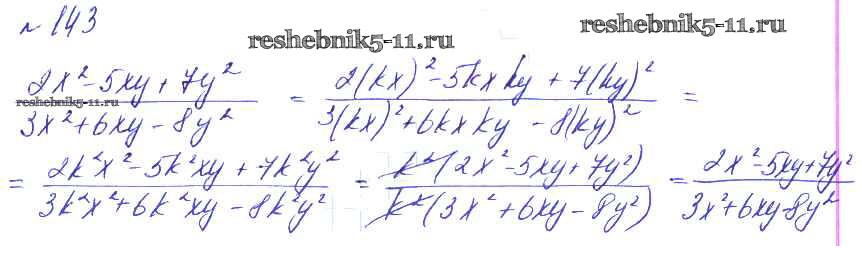 № 143
reshebnik5-11.ru reshebnik5-11.ru
(2x² - 5xy + 7y²)/(3x² + 6xy - 8y²) = (2(kx)² - 5kxky + 7(ky)²)/(3(kx)² + 6kxky - 8(ky)²) =
reshebnik5-11.ru
= (2k²x² - 5k²xy + 7k²y²)/(3k²x² + 6k²xy - 8k²y²) = (k²(2x² - 5xy + 7y²))/(k²(3x² + 6xy - 8y²)) = (2x² - 5xy + 7y²)/(3x² + 6xy - 8y²)